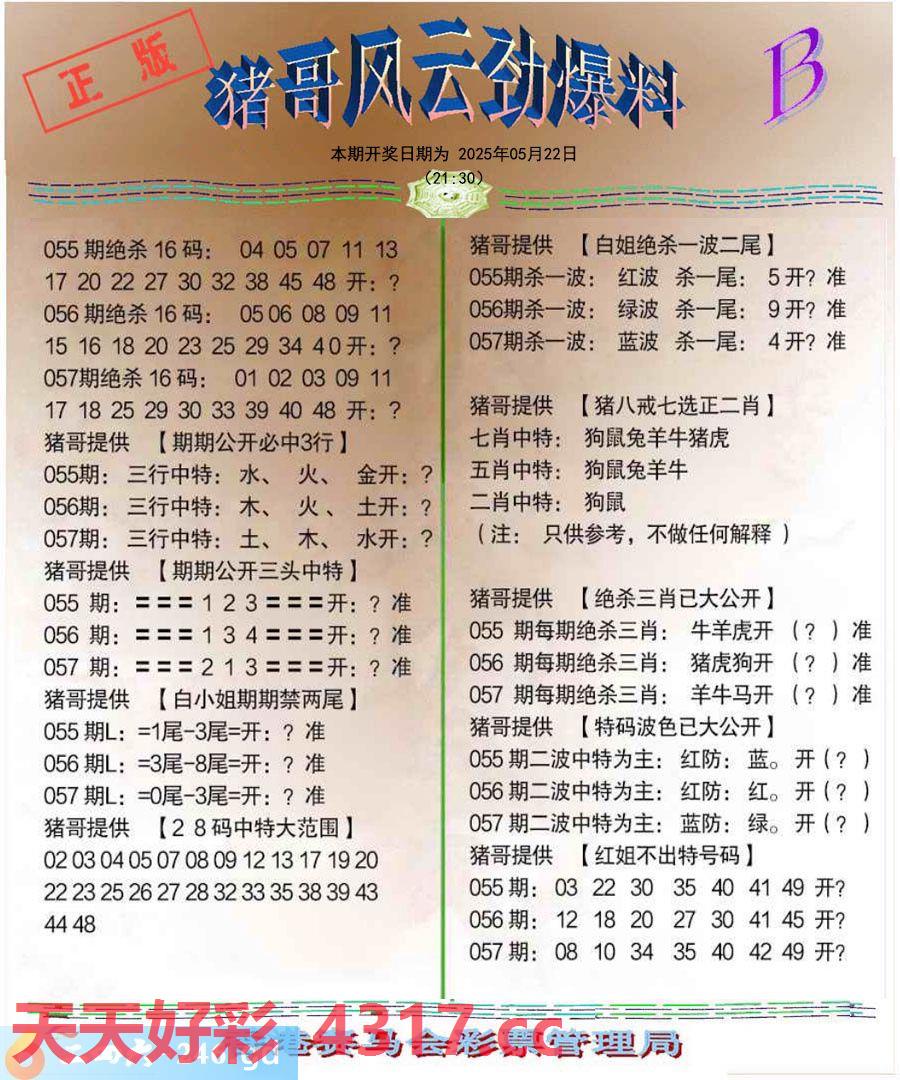 正版
猪哥风云劲爆料
B
本期开奖日期为 2025年05月22日
(21:30)
055期绝杀16码： 04 05 07 11 13
17 20 22 27 30 32 38 45 48 开：?
056期绝杀16码： 05 06 08 09 11
15 16 18 20 23 25 29 34 40开：?
057期绝杀16码： 01 02 03 09 11
17 18 25 29 30 33 39 40 48 开：?
猪哥提供 【期期公开必中3行】
055期： 三行中特： 水、 火、 金开：?
056期： 三行中特： 木、 火、 土开：?
057期： 三行中特： 土、 木、 水开：?
猪哥提供 【期期公开三头中特】
055 期：===123===开：? 准
056 期：===134===开：? 准
057 期：===213===开：? 准
猪哥提供 【白小姐期期禁两尾】
055期L：=1尾-3尾=开：? 准
056期L：=3尾-8尾=开：? 准
057期L：=0尾-3尾=开：? 准
猪哥提供 【28码中特大范围】
02 03 04 05 07 08 09 12 13 17 19 20
22 23 25 26 27 28 32 33 35 38 39 43
44 48
猪哥提供 【白姐绝杀一波二尾】
055期杀一波： 红波 杀一尾： 5开? 准
056期杀一波： 绿波 杀一尾： 9开? 准
057期杀一波： 蓝波 杀一尾： 4开? 准
猪哥提供 【猪八戒七选正二肖】
七肖中特： 狗鼠兔羊牛猪虎
五肖中特： 狗鼠兔羊牛
二肖中特： 狗鼠
（注： 只供参考，不做任何解释）
猪哥提供 【绝杀三肖已大公开】
055 期每期绝杀三肖： 牛羊虎开 （?）准
056 期每期绝杀三肖： 猪虎狗开 （?）准
057 期每期绝杀三肖： 羊牛马开 （?）准
猪哥提供 【特码波色已大公开】
055期二波中特为主： 红防： 蓝。开（?）
056期二波中特为主： 红防： 红。开（?）
057期二波中特为主： 蓝防： 绿。开（?）
猪哥提供 【红姐不出特号码】
055期： 03 22 30 35 40 41 49 开?
056期： 12 18 20 27 30 41 45 开?
057期： 08 10 34 35 40 42 49 开?
天天好彩 4317.cc
港赛马会彩票管理局